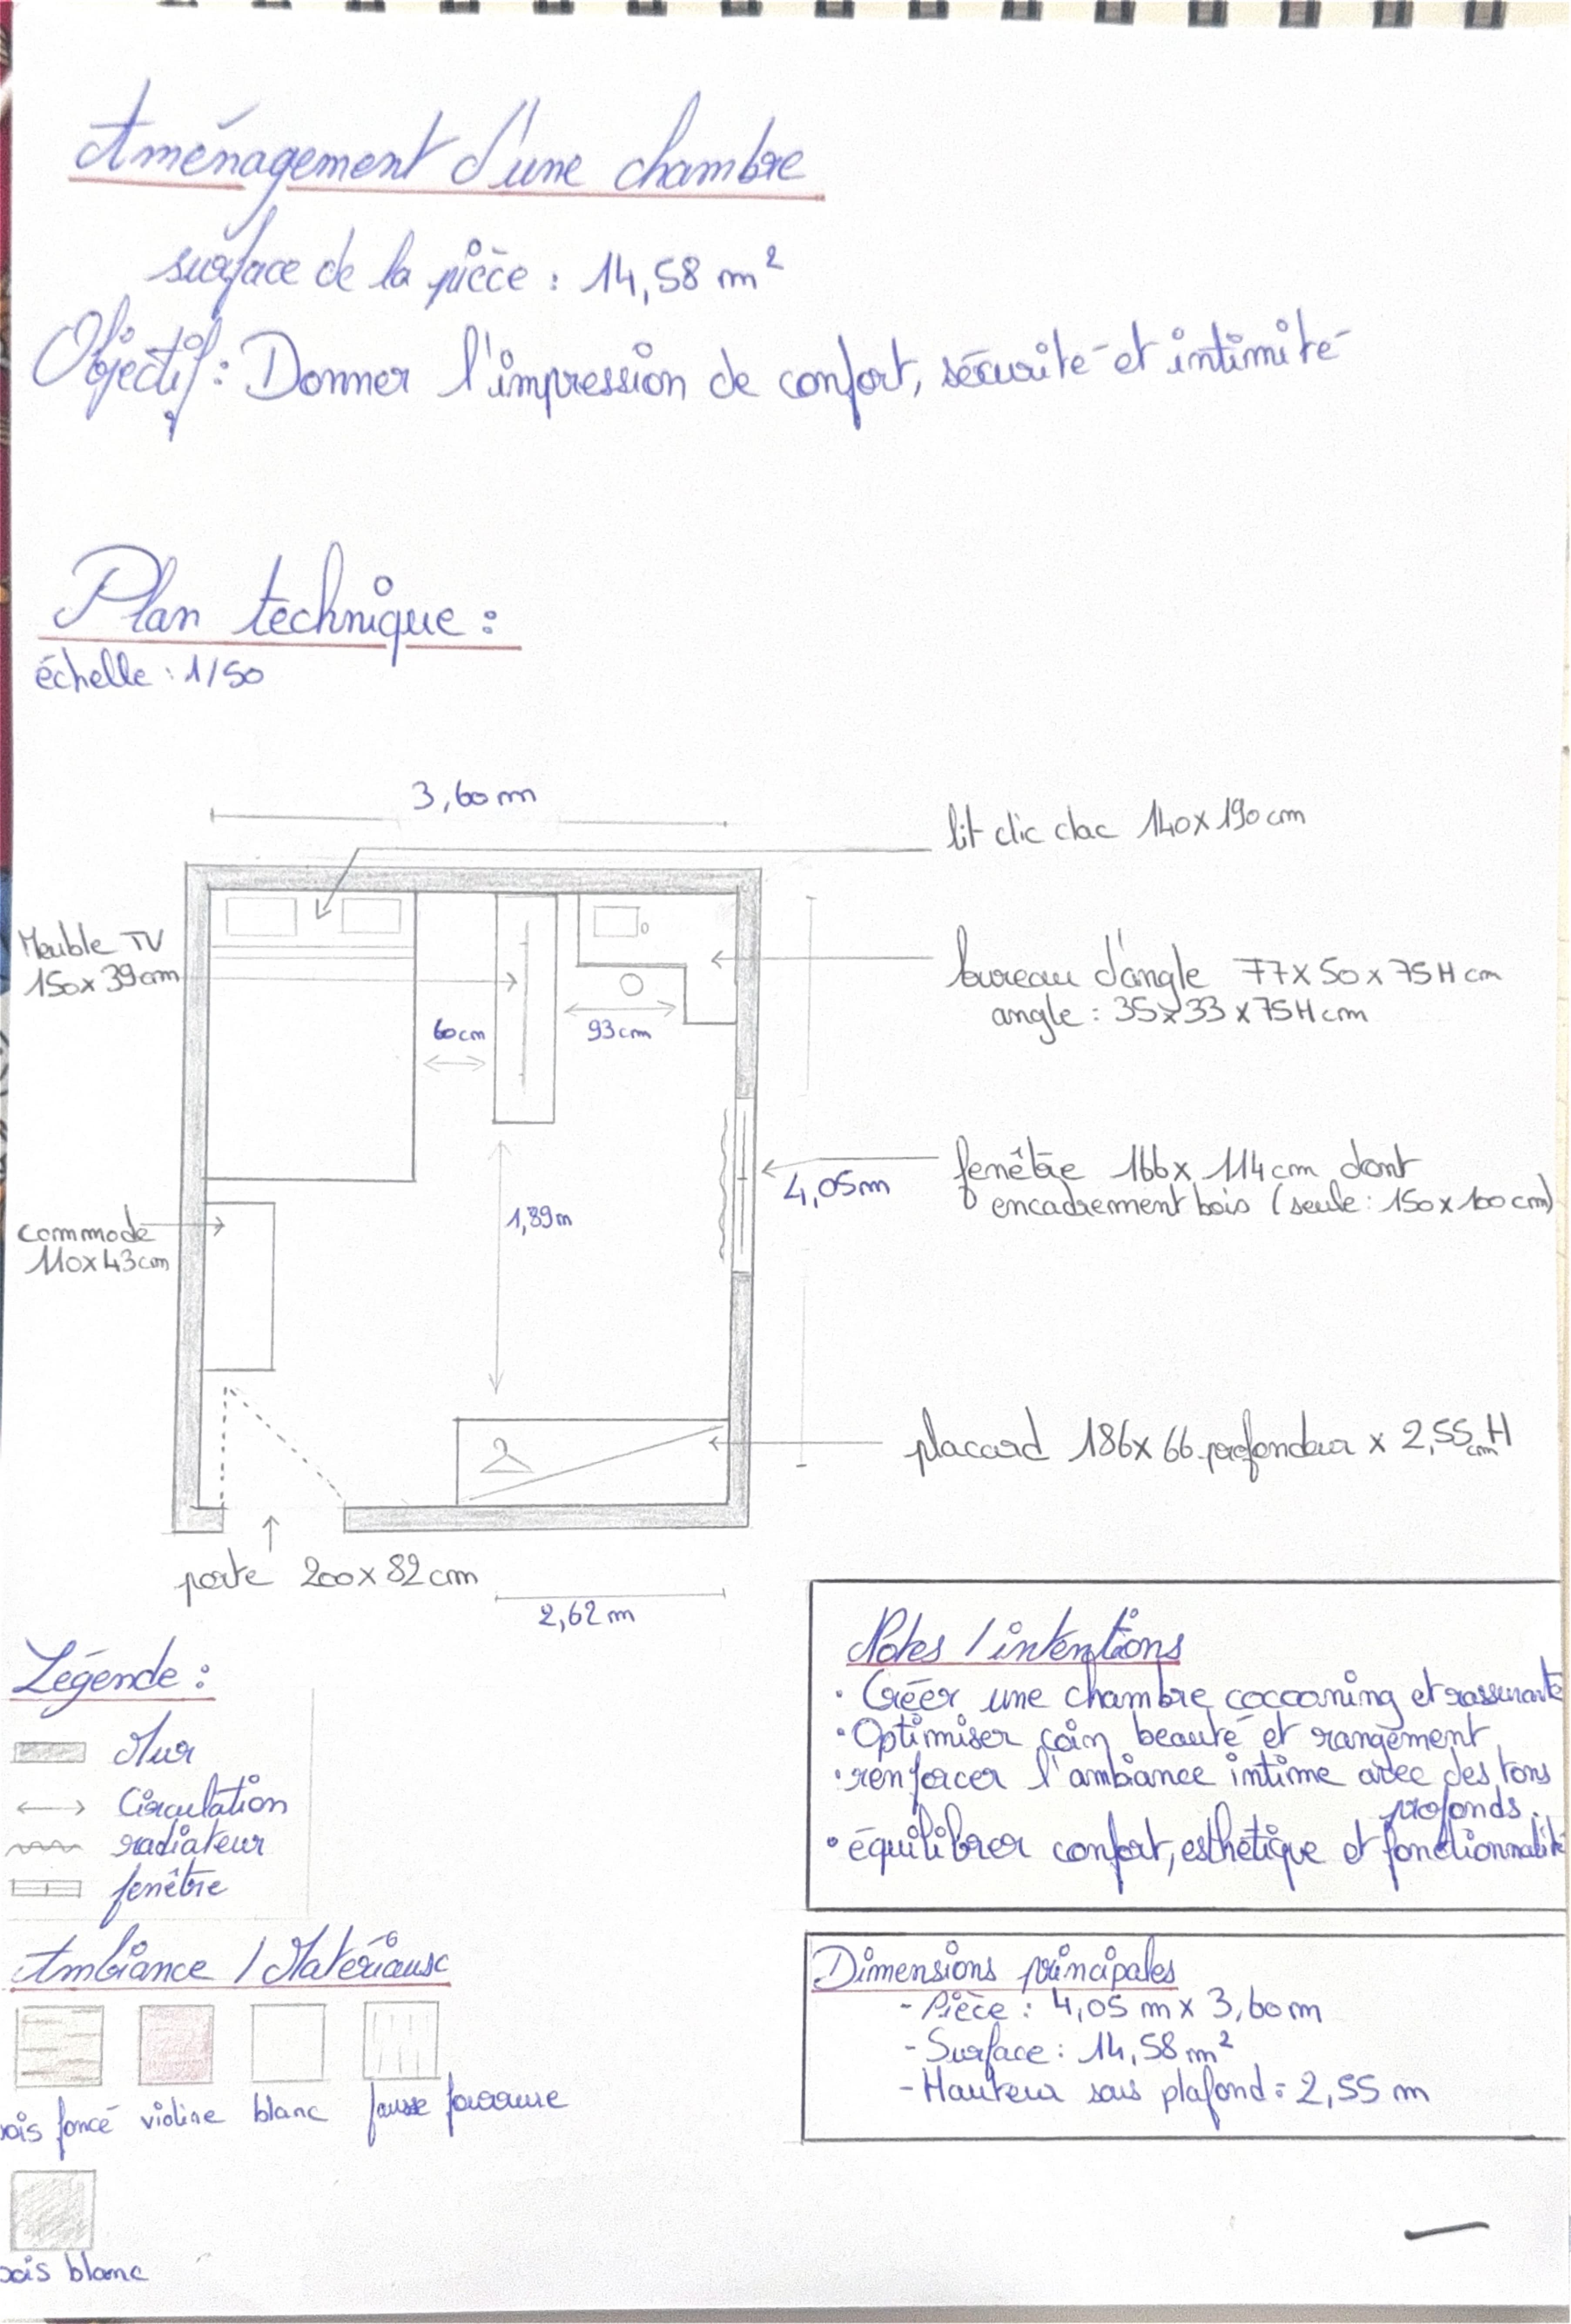 Aménagement d'une chambre
surface de la pièce : 14,58 m²
Objectif : Donner l'impression de confort, sécurité et intimité
Plan technique :
échelle : 1/50
3,60 m
lit clic clac 140 x 190 cm
Meuble TV
150 x 39 cm
bureau d'angle 77 x 50 x 75 H cm
angle : 35 x 33 x 75 H cm
60 cm
93 cm
fenêtre 166 x 114 cm dont
encadrement bois (seule : 150 x 100 cm)
4,05 m
1,89 m
commode
110 x 43 cm
placard 186 x 66 profondeur x 2,55 cm H
porte 200 x 82 cm
2,62 m
Légende :
Mur
Circulation
radiateur
fenêtre
Notes / intentions
• Créer une chambre cocooning et rassurante
• Optimiser coin beauté et rangement
• renforcer l'ambiance intime avec des tons
profonds.
• équilibrer confort, esthétique et fonctionnalité
Ambiance / Matériaux
ois foncé violine blanc fausse fourrure
ois blanc
Dimensions principales
- Pièce : 4,05 m x 3,60 m
- Surface : 14,58 m²
- Hauteur sous plafond = 2,55 m